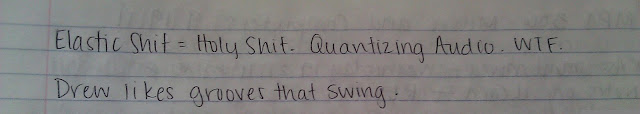 Elastic Shit = Holy Shit. Quantizing Audio. WTF.
Drew likes grooves that swing.